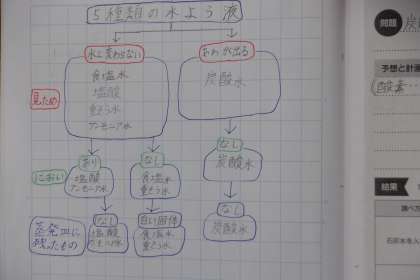 5種類の水よう液
水と変わらない
あわが出る
見ため
食塩水
塩酸
重そう水
アンモニア水
炭酸水
におい
あり
なし
なし
塩酸
アンモニア水
食塩水
重そう水
炭酸水
蒸発皿に
残ったもの
なし
白い固体
なし
塩酸
アンモニア水
食塩水
重そう水
炭酸水
問題
炭
予想と計画
結果
調べ方
石灰水を入